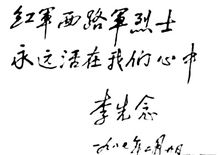 红軍西路軍烈士
永远活在我们心中
李先念
一九八七年二月